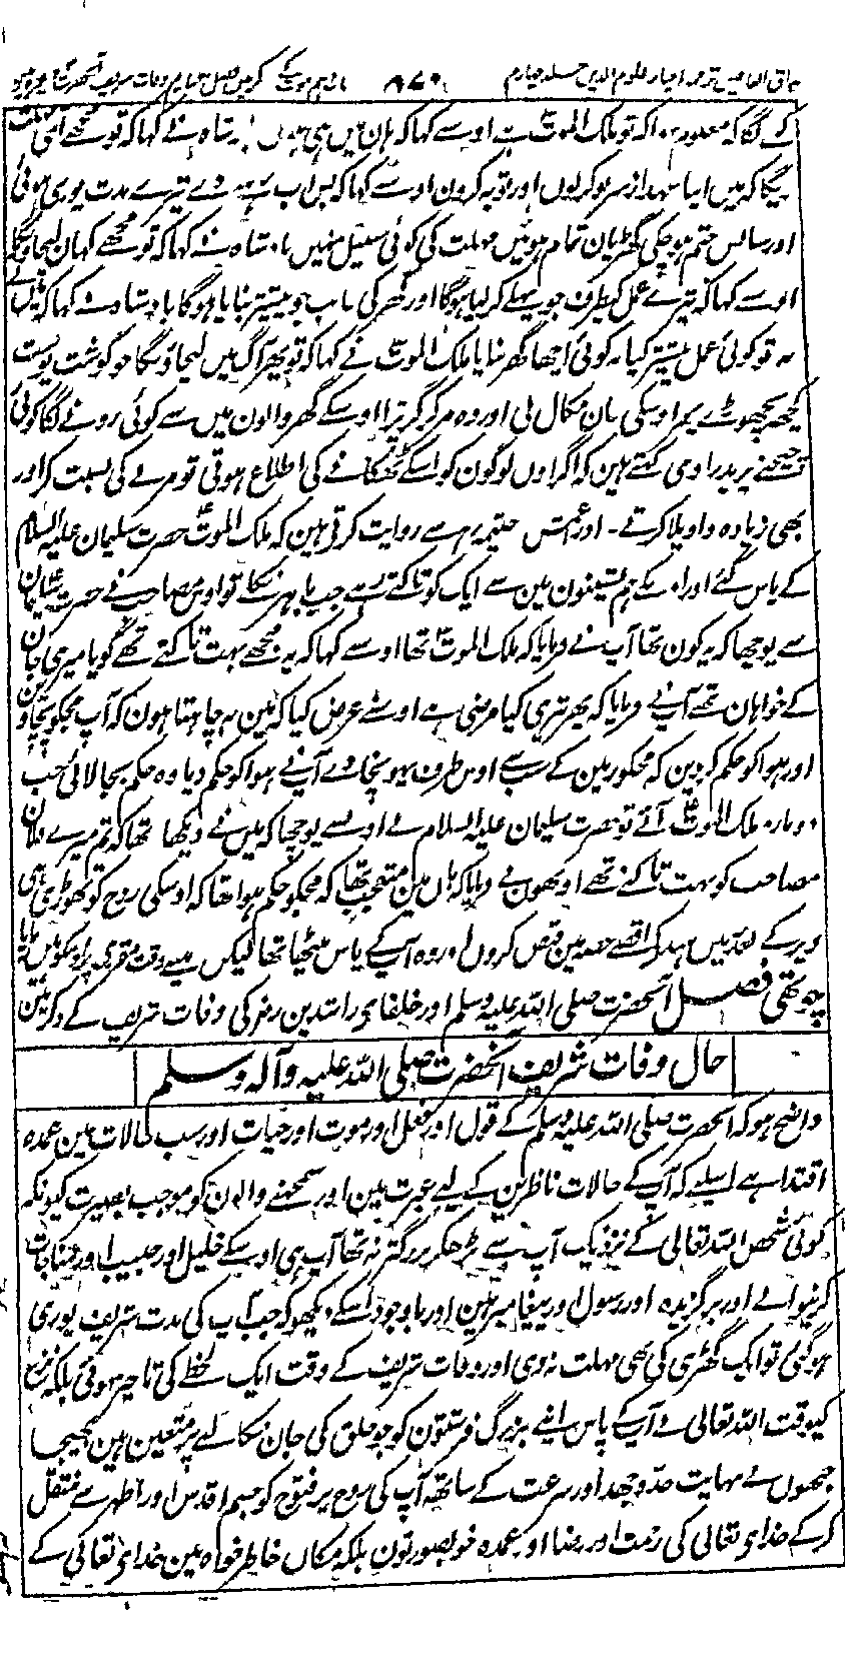 مذاق العارفین ترجمہ احیاء علوم الدین جلد چہارم ۸۷۹
کے لگا کہ معلوم ہوا کہ تو ملک الموت ہے اوسنے کہا کہ ہان مین ہی ہون بادشاہ نے کہا کہ تو مجھے اتنی مہلت
کہ مین اپنا عہد از سر نو کرلون اور توبہ کرون اوسنے کہا کہ بس اب تیرے مدت پوری ہوئی
اور سانس ختم ہو چکی گھڑیان تمام ہوئین مہلت کی کوئی سبیل نہین بادشاہ نے کہا کہ تو مجھے کہان لیجاویگا
اوسنے کہا کہ تیرے عمل کیطرف جو پہلے کرلیا ہوگا اور گھر کی جانب جو بیشتر بنایا ہوگا بادشاہ نے کہا کہ مین نے
نہ تو کوئی عمل بیشتر کیا نہ کوئی اچھا گھر بنایا ملک الموت نے کہا کہ تو پھر آگ مین لیجاؤنگا جو گوشت پوست
کچھ نچھوڑے پھر اوسکی جان نکال لی اور وہ مرکر گر پڑا اوسکے گھر والون مین سے کوئی رونے لگا کوئی
چیخنے یزید راوی کہتے ہین کہ اگر اون لوگون کو اسکے ٹھکانے کی اطلاع ہوتی تو مرنے کی نسبت کر اور
بھی زیادہ واویلا کرتے۔ اور اعمش خیثمہ سے روایت کرتی ہین کہ ملک الموت حضرت سلیمان علیہ السلام
کے پاس گئے اور اونکے ہم نشینون مین سے ایک کو تاکتے رہے جب باہر نکلے تو اوس مصاحب نے حضرت سلیمان
سے پوچھا کہ یہ کون تھا آپ نے فرمایا کہ ملک الموت تھا اوسنے کہا کہ یہ مجھے بہت تاکتے تھے گویا میری جان
کے خواہان تھے آپ نے فرمایا کہ پھر تیری کیا مرضی ہے اوسنے عرض کیا کہ مین یہ چاہتا ہون کہ آپ مجھکو بچاوین
اور ہوا کو حکم کر دین کہ مجھکو زمین کے سب سے اوس طرف پہونچا دے آپ نے ہوا کو حکم دیا وہ حکم بجا لائی جب
دوبارہ ملک الموت آئے تو حضرت سلیمان علیہ السلام نے اونسے پوچھا کہ مین نے دیکھا تھا کہ تم میرے فلان
مصاحب کو بہت تاکتے تھے اونھون نے فرمایا کہ ہان مین متعجب تھا کہ مجھکو حکم ہوا تھا کہ اوسکی روح کو تھوڑی ہی
دیر کے بعد مین ہند کے اقصے حصہ مین قبض کرون اور وہ آپ کے پاس بیٹھا تھا لیکن مینے وقت مقررہ پر اوسکو وہین پایا
چوتھی فصل آنحضرت صلی اللہ علیہ وسلم اور خلفای راشدین رضہ کی وفات شریف کے ذکر مین
حال وفات شریف آنحضرت صلی اللہ علیہ وآلہ وسلم
واضح ہو کہ آنحضرت صلی اللہ علیہ وسلم کے قول اور فعل اور موت اور حیات اور سب حالات مین عمدہ
اقتدا ہے اسلیے کہ آپ کے حالات ناظرین کے لیے عبرت ہین اور سمجھنے والون کو موجب بصیرت کیونکہ
کوئی شخص اللہ تعالی کے نزدیک آپ سے بڑھکر بزرگتر نہ تھا آپ ہی اوسکے خلیل اور حبیب اور مناجات
کرنیوالے اور برگزیدہ اور رسول اور پیغامبر ہین اور باوجود اسکے دیکھو کہ جب آپ کی مدت شریف پوری
ہوگئی تو ایک گھڑی کی بھی مہلت ندی اور وفات شریف کے وقت ایک لحظے کی تاخیر نہوئی بلکہ نزع
کیوقت اللہ تعالی نے آپ کے پاس اپنے بزرگ فرشتون کو جو خلق کی جان نکالنے پر متعین ہین بھیجا
جنھون نے نہایت جد وجہد اور سرعت کے ساتھ آپ کی روح پر فتوح کو جسم اقدس اور اطہر سے منتقل
کرکے خدای تعالی کی رحمت اور رضا اور عمدہ خوبصورتون بلکہ مکان خاطر خواہ مین خدای تعالی کے